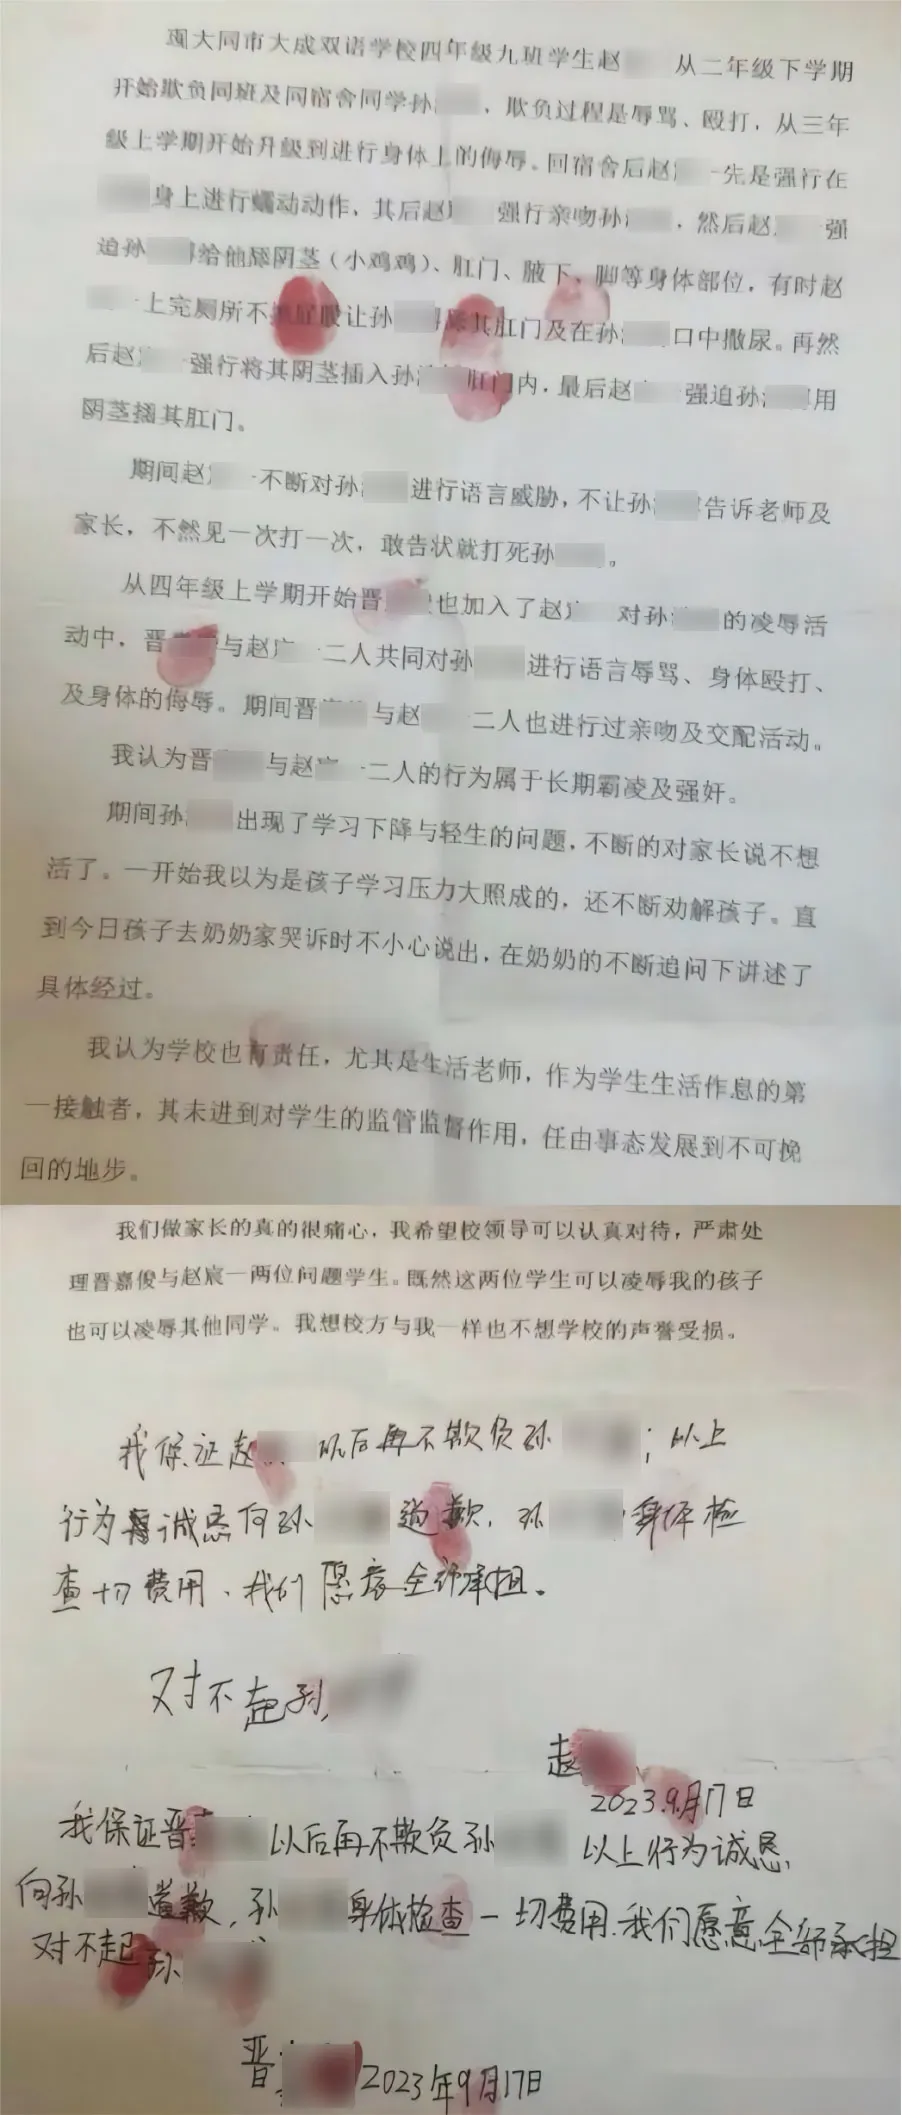 现大同市大成双语学校四年级九班学生赵 从二年级下学期
开始欺负同班及同宿舍同学孙 ，欺负过程是辱骂、殴打，从三年
级上学期开始升级到进行身体上的侮辱。回宿舍后赵 一先是强行在
身上进行蠕动动作，其后赵 强行亲吻孙 ，然后赵 强
迫孙 给他舔阴茎（小鸡鸡）、肛门、腋下、脚等身体部位，有时赵
一上完厕所不 屁股让孙 其肛门及在孙 口中撒尿。再然
后赵 一强行将其阴茎插入孙 肛门内，最后赵 强迫孙 用
阴茎插其肛门。
期间赵 一不断对孙 进行语言威胁，不让孙 告诉老师及
家长，不然见一次打一次，敢告状就打死孙 。
从四年级上学期开始晋 也加入了赵 对孙 的凌辱活
动中，晋 与赵 一二人共同对孙 进行语言辱骂、身体殴打、
及身体的侮辱。期间晋 与赵 一二人也进行过亲吻及交配活动。
我认为晋 与赵 一二人的行为属于长期霸凌及强奸。
期间孙 出现了学习下降与轻生的问题，不断的对家长说不想
活了。一开始我以为是孩子学习压力大照成的，还不断劝解孩子。直
到今日孩子去奶奶家哭诉时不小心说出，在奶奶的不断追问下讲述了
具体经过。
我认为学校也有责任，尤其是生活老师，作为学生生活作息的第
一接触者，其未进到对学生的监管监督作用，任由事态发展到不可挽
回的地步。
我们做家长的真的很痛心，我希望校领导可以认真对待，严肃处
理晋 与赵 两位问题学生。既然这两位学生可以凌辱我的孩子
也可以凌辱其他同学。我想校方与我一样也不想学校的声誉受损。
我保证赵 以后再不欺负孙 ；以上
行为 诚恳向孙 道歉，孙 身体检
查一切费用、我们愿意全部承担。
对不起孙
赵
2023.9月17日
我保证晋 以后再不欺负孙 以上行为诚恳
向孙 道歉，孙 身体检查一切费用.我们愿意全部承担
对不起 孙
晋 2023年9月17日